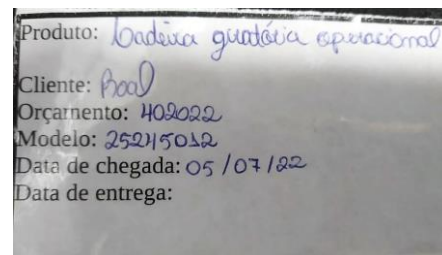 Produto: Cadeira giratória operacional
Cliente: Boal
Orçamento: 402022
Modelo: 25245012
Data de chegada: 05/07/22
Data de entrega: